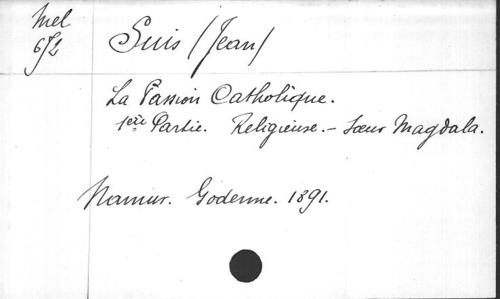 Mel
672
Suis (Jean)
La Passion Catholique.
1ère Partie. Religieuse. - Sœur Magdala.
Namur. Godenne. 1891.